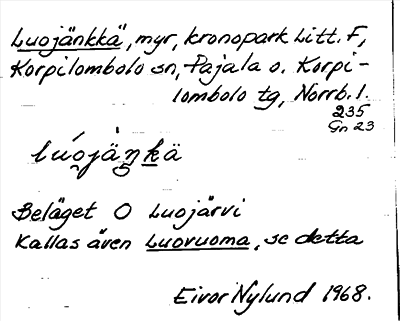 Luojänkkä, myr, kronopark Litt. F,
Korpilombolo sn, Pajala o. Korpi-
lombolo tg, Norrb. l.
235
Gn 23
lu̯o̯jäŋkä
Beläget O Luojärvi
Kallas även Luovuoma, se detta
Eivor Nylund 1968.